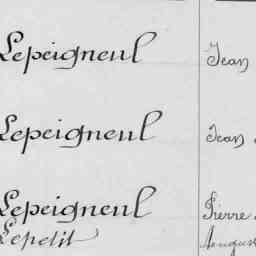 Lepeigneul Jean
Lepeigneul Jean
Lepeigneul Pierre
Lepetit August